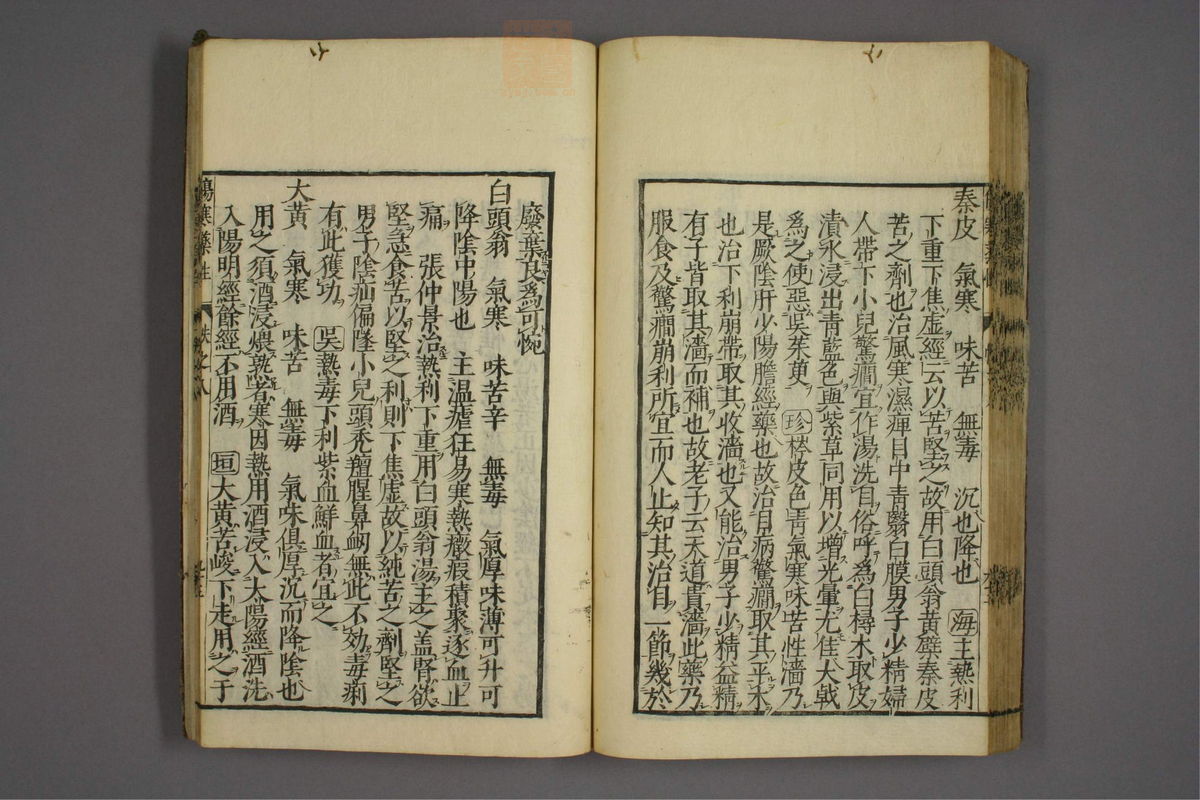 秦皮　氣寒　味苦　無毒　沉也降也　海主熱利
下重下焦虚經云以苦堅之故用白頭翁黄蘗秦皮
苦之劑也治風寒濕痺目中青翳白膜男子少精婦
人帶下小兒驚癇宜作湯洗目俗呼爲白樳木取皮
漬水浸出青藍色與紫草同用以增光暈尤佳大戟
爲之使惡吳茱萸　珍梣皮色青氣寒味苦性濇乃
是厥陰肝少陽膽經藥也故治目病驚癇取其平木
也治下利崩帶取其收濇也又能治男子少精益精
有子皆取其濇而補也故老子云天道貴濇此藥乃
服食及驚癇崩利所宜而人止知其治目一節幾於
廢棄良爲可惋
白頭翁　氣寒　味苦辛　無毒　氣厚味薄可升可
降陰中陽也　主温瘧狂易寒熱癥瘕積聚逐血止
痛　張仲景治熱利下重用白頭翁湯主之盖腎欲
堅急食苦以堅之利則下焦虚故以純苦之劑堅之
男子陰疝偏墜小兒頭禿羶腥鼻衂無此不効毒痢
有此獲功　吳熱毒下利紫血鮮血者宜之
大黄　氣寒　味苦　無毒　氣味俱厚沉而降陰也
用之須酒浸煨熟者寒因熱用酒浸入太陽經酒洗
入陽明經餘經不用酒　垣大黄苦峻下走用之于
傷寒藥性　卷之八